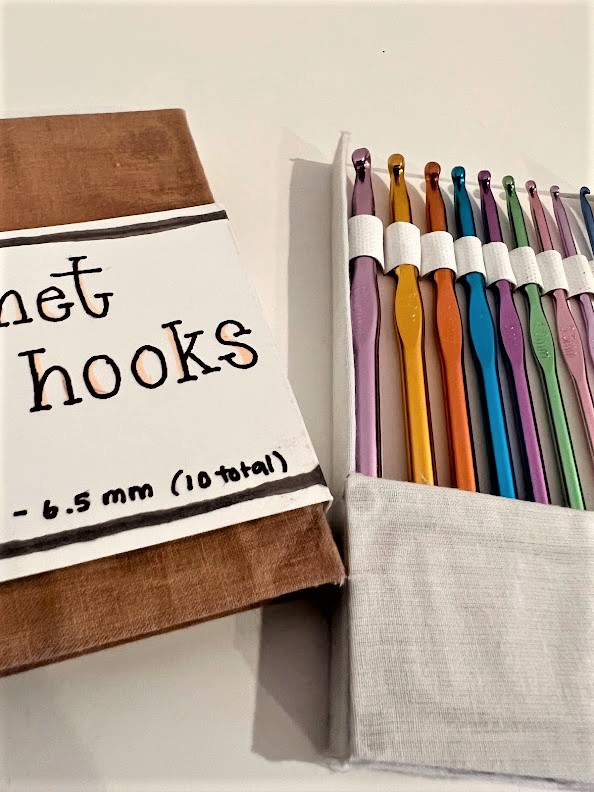 hooks
- 6.5 mm (10 total)